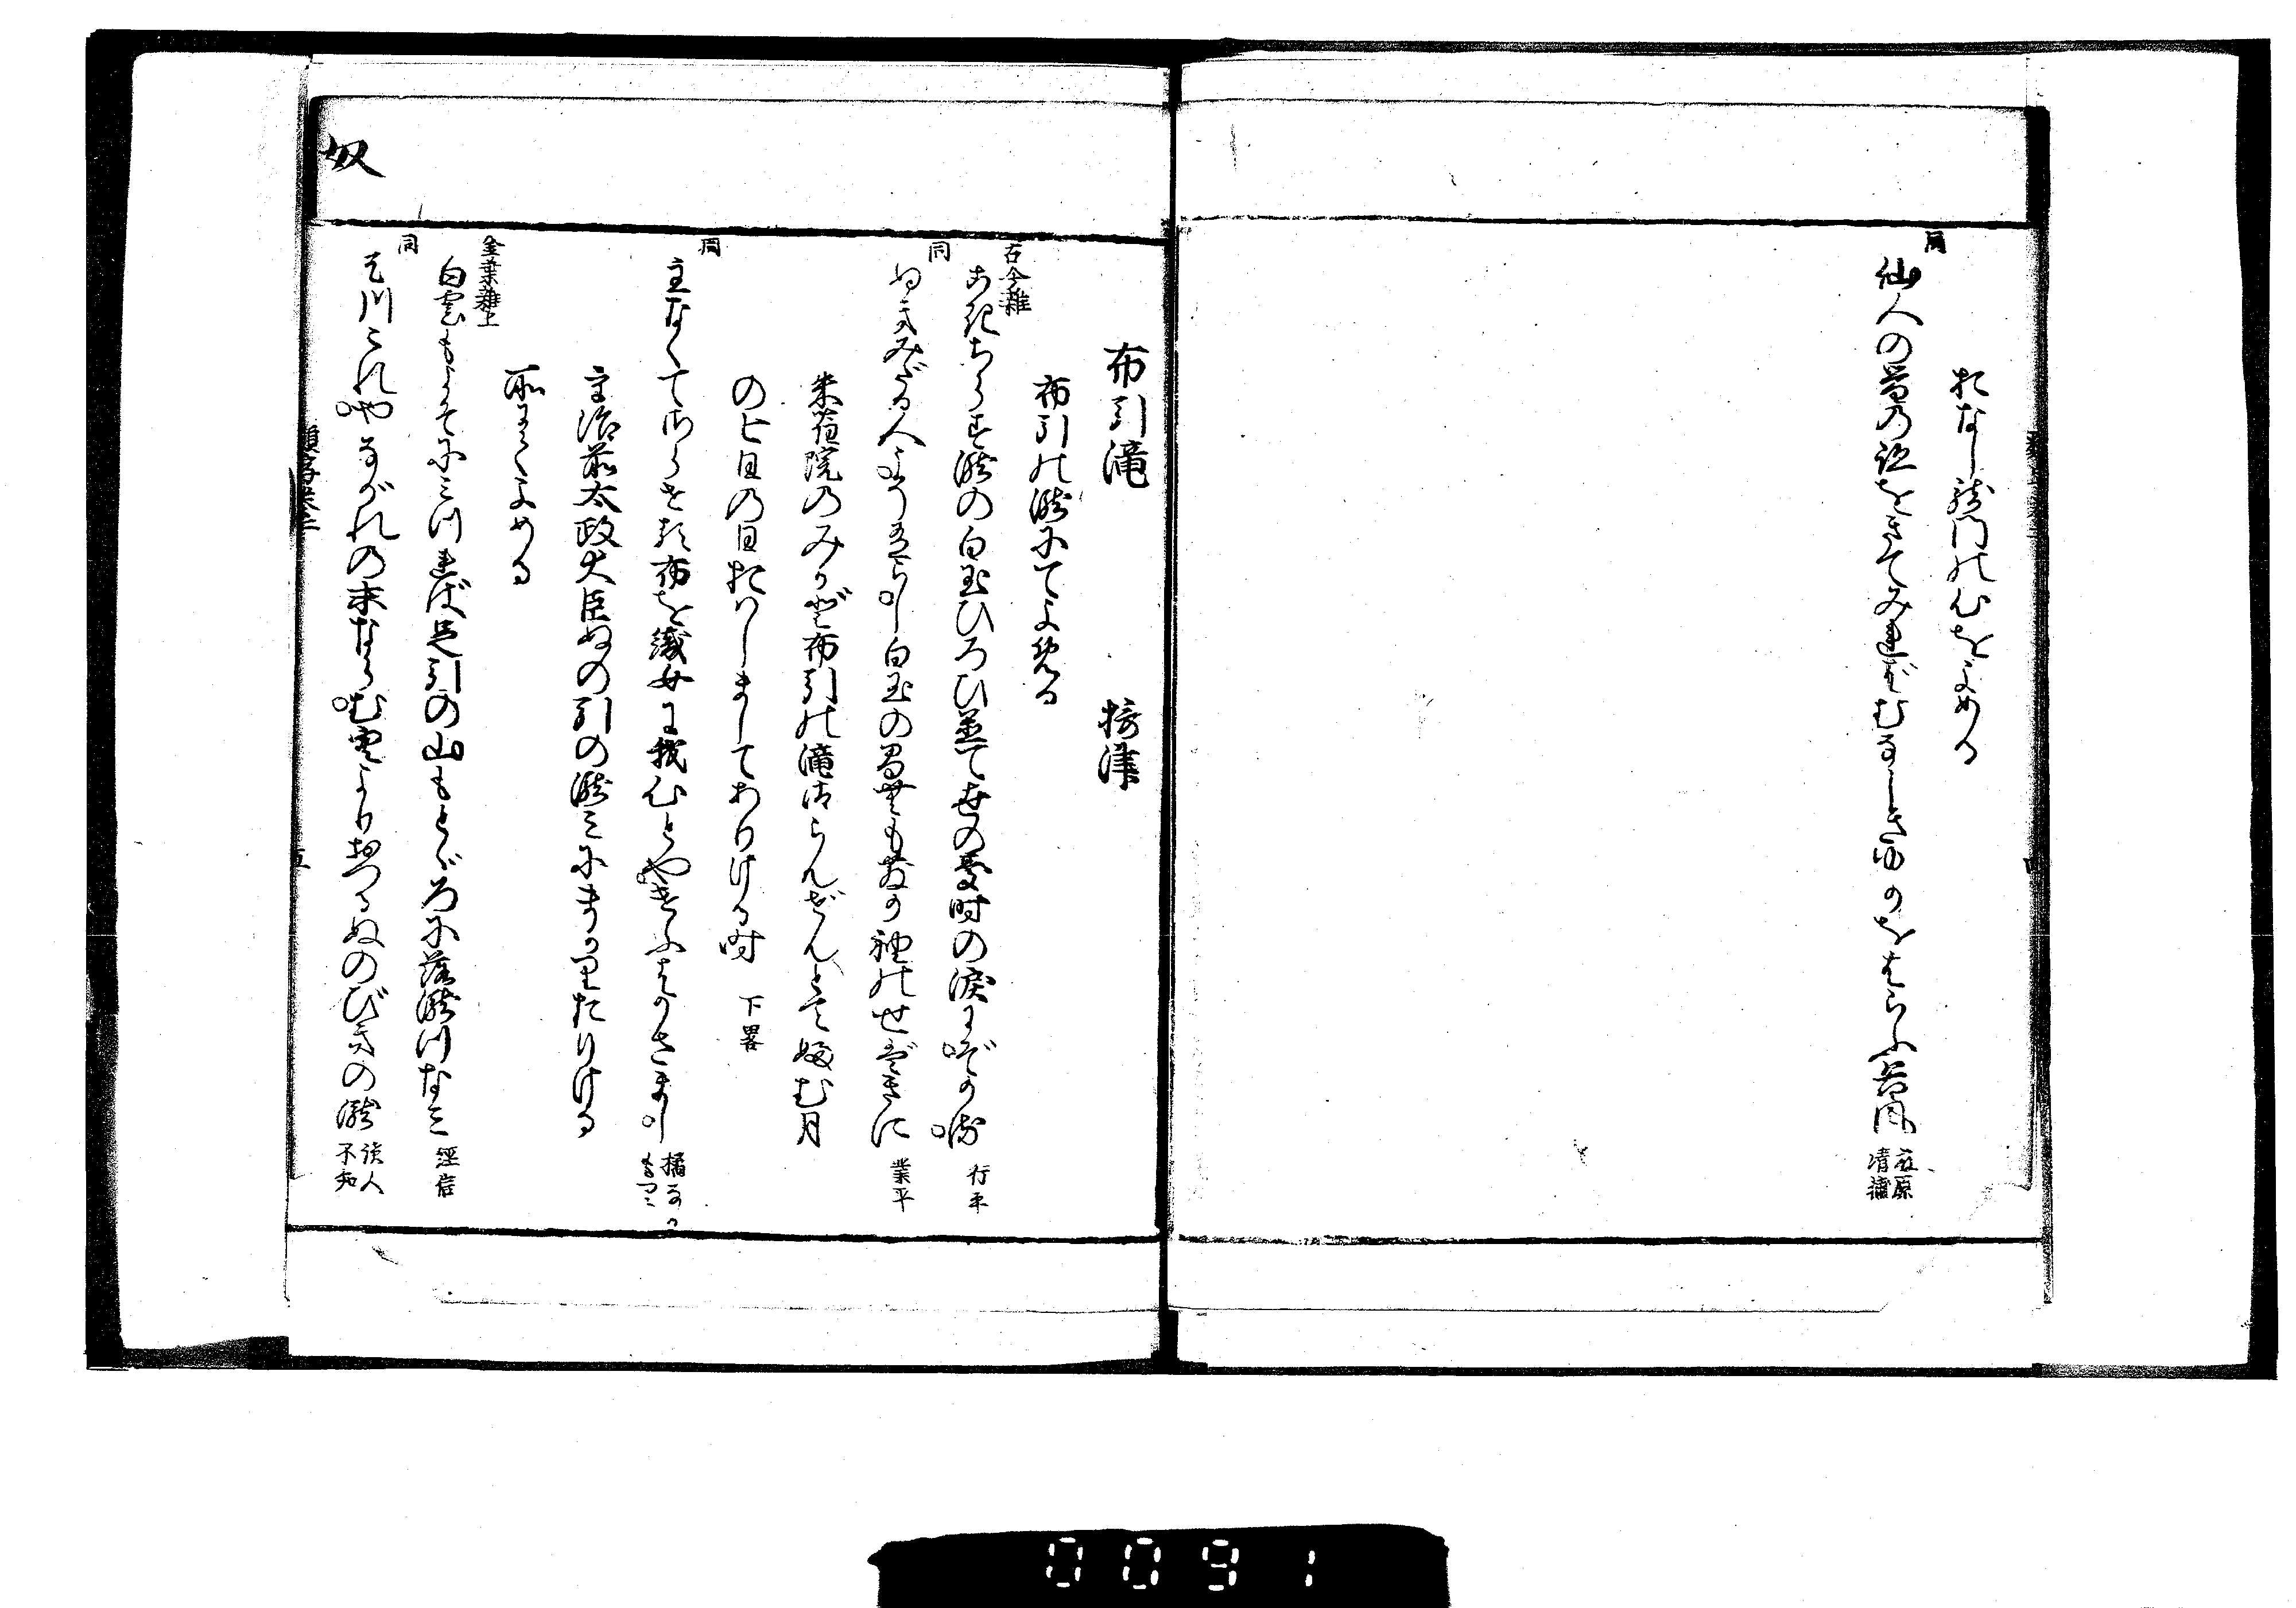 おなし龍門の心をよめる
同
仙人の昔の跡をきてみればむなしきゆかをはらふ谷風
清原
清輔
布引滝
摂津
布引の瀧にてよめる
古今雑
こきちらす瀧の白玉ひろひ置て世の憂時の涙にぞかる
行平
同
ぬきみだる人こそ有らし白玉のまなくもちるか袖のせばきに
業平
朱雀院のみかど布引の滝御らんぜんとてふむ月
の七日の日おはしましてありける時
下畧
同
主なくてさらせる布を織女に我心とやけふはかさまし
橘なか
もり
宇治前太政大臣ぬの引の瀧みにまかりたりける
所にてよめる
金葉雑上
白雲もよそにみつれば足引の山もとゞろに落瀧川なみ
經信
同
天川これやながれの末ならむ空より落るぬのびきの瀧
讀人
不知
奴
類字巻三
五
0091